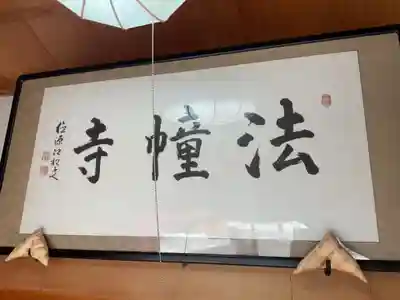 法幢寺